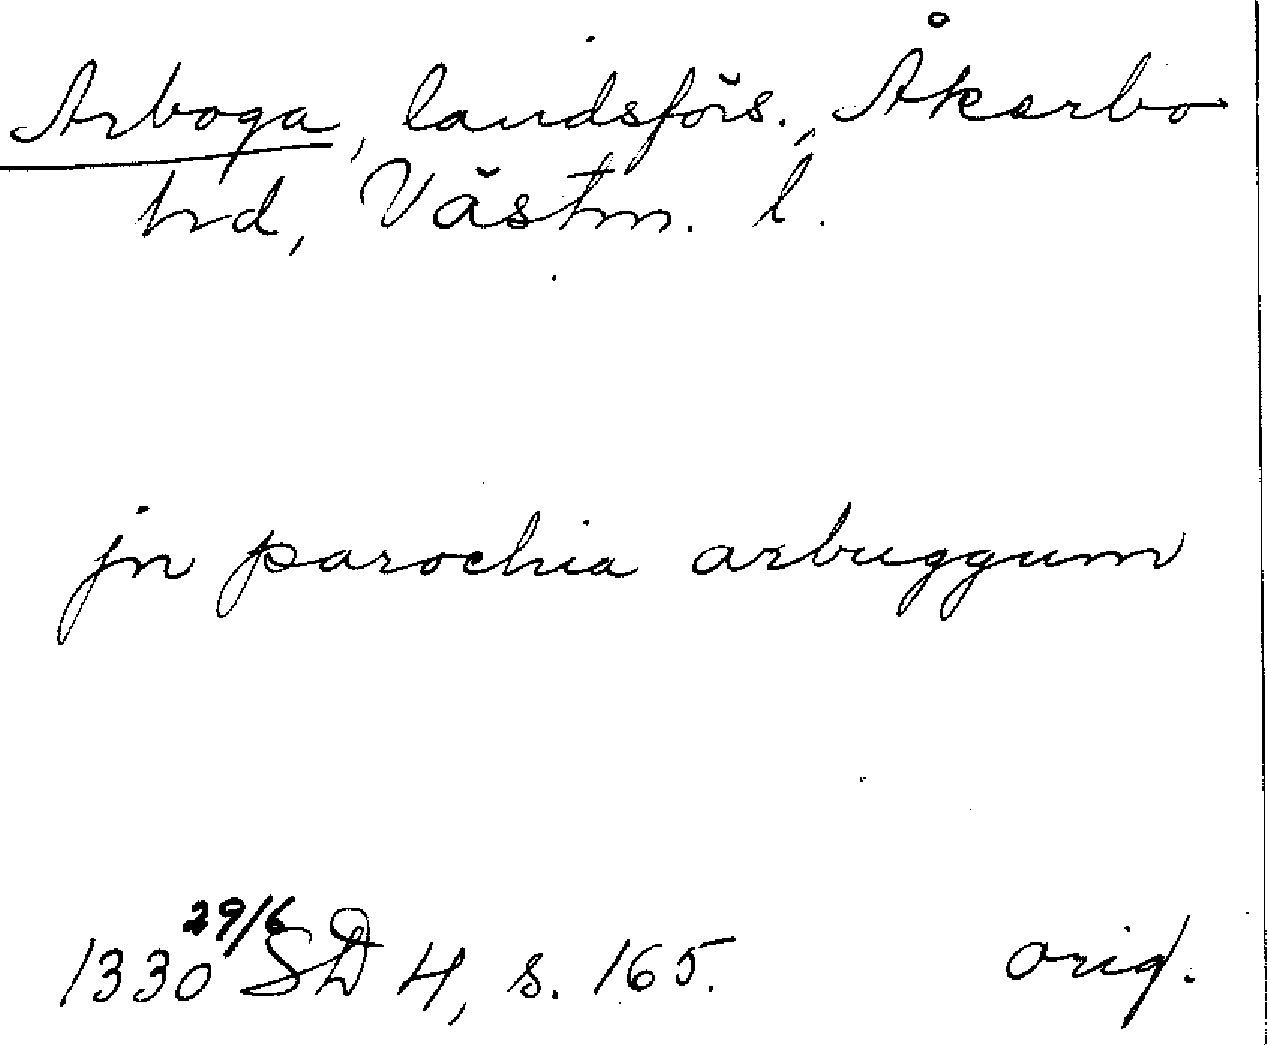 Arboga, landsförs., Åkerbo
hrd, Västm. l.
jn parochia arbuggum
1330 29/6 SD 4, s. 165. orig.